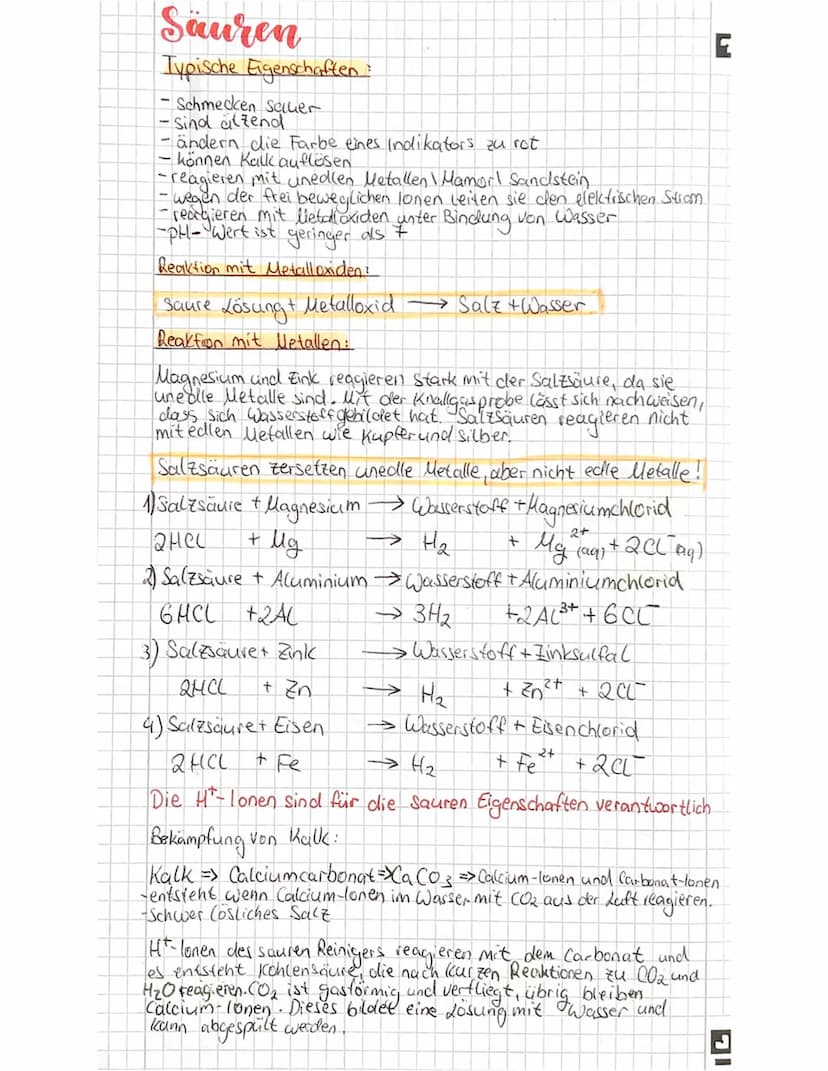 Säuren
Typische Eigenschaften:
- Schmecken sauer
- sind ätzend
- ändern die Farbe eines Indikators zu rot
- können Kalk auflösen
- reagieren mit unedlen Metallen \ Mamor \ Sandstein
- wegen der frei beweglichen Ionen leiten sie den elektrischen Strom
- reagieren mit Metalloxiden unter Bindung von Wasser
- pH-Wert ist geringer als 7
Reaktion mit Metalloxiden:
saure Lösung + Metalloxid → Salz + Wasser
Reaktion mit Metallen:
Magnesium und Zink reagieren stark mit der Salzsäure, da sie
unedle Metalle sind. Mit der Knallgasprobe lässt sich nachweisen,
dass sich Wasserstoff gebildet hat. Salzsäuren reagieren nicht
mit edlen Metallen wie Kupfer und Silber.
Salzsäuren zersetzen unedle Metalle, aber nicht edle Metalle!
1) Salzsäure + Magnesium → Wasserstoff + Magnesiumchlorid
2HCL + Mg → H₂ + Mg²⁺(aq) + 2CL⁻aq)
2) Salzsäure + Aluminium → Wasserstoff + Aluminiumchlorid
6HCL + 2AL → 3H₂ + 2AL³⁺ + 6CL⁻
3) Salzsäure + Zink → Wasserstoff + Zinksulfal
2HCL + Zn → H₂ + Zn²⁺ + 2CL⁻
4) Salzsäure + Eisen → Wasserstoff + Eisenchlorid
2HCL + Fe → H₂ + Fe²⁺ + 2CL⁻
Die H⁺-Ionen sind für die sauren Eigenschaften verantwortlich
Bekämpfung von Kalk:
Kalk => Calciumcarbonat => CaCO₃ => Calcium-Ionen und Carbonat-Ionen
- entsteht wenn Calcium-Ionen im Wasser mit CO₂ aus der Luft reagieren.
- Schwer lösliches Salz
H⁺-Ionen des sauren Reinigers reagieren mit dem Carbonat und
es entsteht Kohlensäure, die nach kurzen Reaktionen zu CO₂ und
H₂O reagieren. CO₂ ist gasförmig und verfliegt, übrig bleiben
Calcium-Ionen. Dieses bildet eine Lösung mit Wasser und
kann abgespült werden.